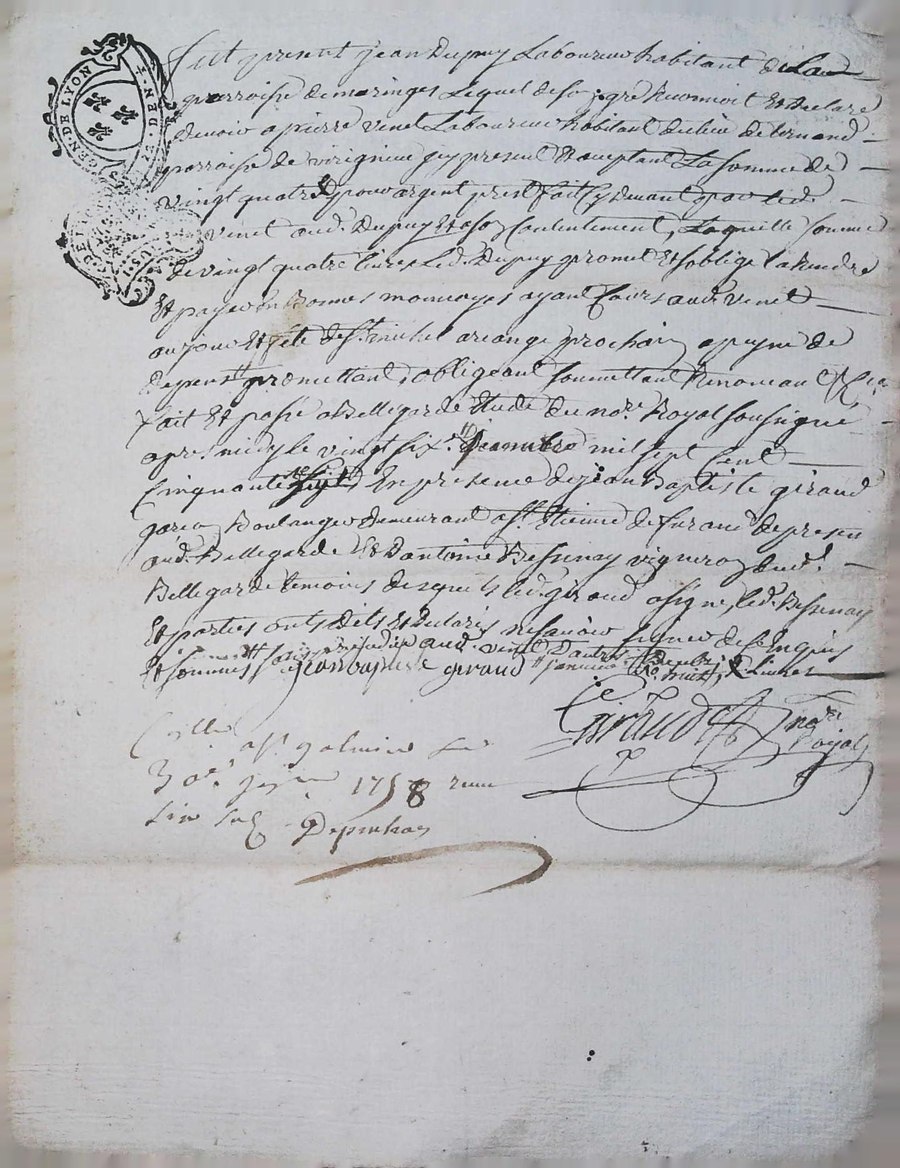 GEN. DE LYON
DEN. ET
Fut present jean Dupuy Laboureur habitant de La
parroisse de maringes Lequel de son gré Reconnoit Et declare
devoir a pierre venet Laboureur habitant du lieu de
parroisse de virigneu icy present Et acceptant La somme de
vingt quatre pour argent prest fait cy devant par led.
venet aud. Dupuy Et a son Contentement, Laquelle somme
de vingt quatre livres Led. Dupuy promet Et soblige la Rendre
Et payer En bonnes monnoyes ayant Cours aud. venet
au jour Et fete de st. michel arcange prochain a peyne de
depens promettant, obligeant soumettant Renonceant &c.
fait Et passé a Bellegarde Etude du nore. Royal soussigné
apres midy le vingt sixe. Decembre mil sept Cent
Cinquante sept En presence de jean Baptiste giraud
garçon Boulanger demeurant a st. Etienne de furand de present
aud. Bellegarde Et d'antoine Bessenay vigneron dud.
Bellegarde temoins desquels led. giraud a signé, led. Bessenay
Et parties onts dits Et declarés ne sçavoir signer de ce Enquis
Et sommés sans prejudice aud. venet d'autre
jean baptiste giraud
Giraud nore.
Royal
Collé a st. galmier Le
30e. 1758 reçu
Depinhac